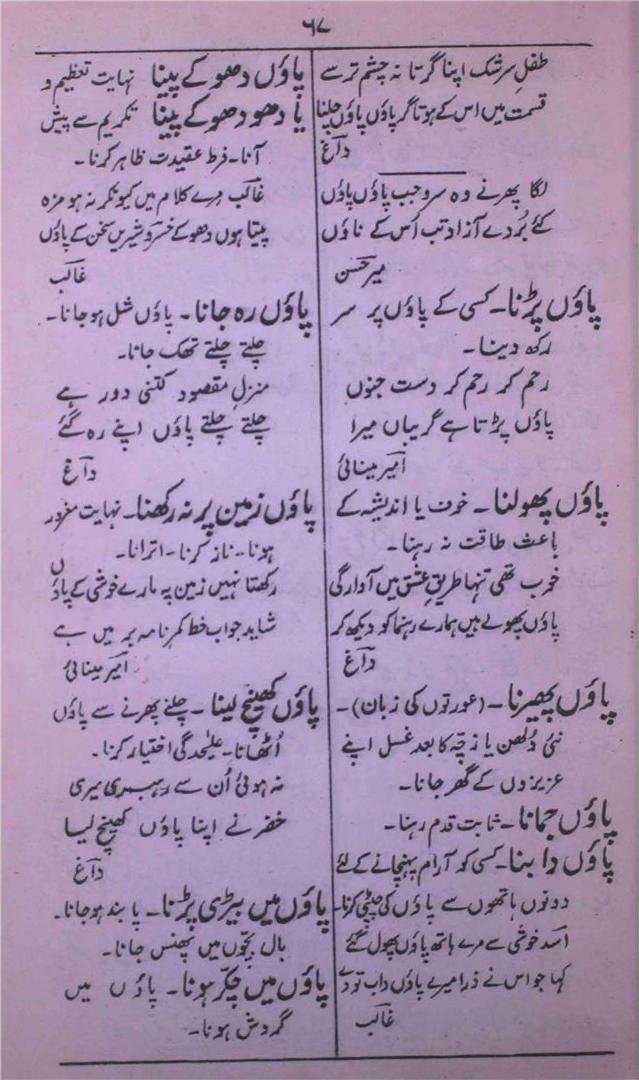 ۶۷
طفلِ سرشک اپنا گرتا نہ چشمِ تر سے
قسمت میں اس کے ہوتا گر پاؤں پاؤں چلنا
داغ
لگا پھرنے وہ سرو جب پاؤں پاؤں
کئے بُردے آزاد تب اُس کے ناؤں
میر حسن
پاؤں پڑنا۔ کسی کے پاؤں پر سر
رکھ دینا۔
رحم کر رحم کر دست جنوں
پاؤں پڑتا ہے گریباں میرا
امیر مینائی
پاؤں پھولنا۔ خوف یا اندیشہ کے
باعث طاقت نہ رہنا۔
خوب تھی تنہا طریقِ عشق میں آوارگی
پاؤں پھولے ہیں ہمارے رہنما کو دیکھ کر
داغ
پاؤں پھیرنا۔ (عورتوں کی زبان)۔
نئی دُلھن یا زچّہ کا بعد غسل اپنے
عزیزوں کے گھر جانا۔
پاؤں جمانا۔ ثابت قدم رہنا۔
پاؤں دابنا۔ کسی کو آرام پہنچانے کے لئے
دونوں ہاتھوں سے پاؤں کی چپّی کرنا۔
اسد خوشی سے مرے ہاتھ پاؤں پھول گئے
کہا جو اس نے ذرا میرے پاؤں داب تو دے
غالب
پاؤں دھو کے پینا نہایت تعظیم و
یا دھو دھو کے پینا تکریم سے پیش
آنا۔ فرط عقیدت ظاہر کرنا۔
غالب مرے کلام میں کیونکر نہ ہو مزہ
پیتا ہوں دھو کے خسرو شیریں سخن کے پاؤں
غالب
پاؤں رہ جانا۔ پاؤں شل ہو جانا۔
چلتے چلتے تھک جانا۔
منزلِ مقصود کتنی دور ہے
چلتے چلتے پاؤں اپنے رہ گئے
داغ
پاؤں زمین پر نہ رکھنا۔ نہایت مغرور
ہونا۔ ناز کرنا۔ اترانا۔
رکھتا نہیں زمین پہ مارے خوشی کے پاؤں
شاید جواب خط کمر نامہ بر میں ہے
امیر مینائی
پاؤں کھینچ لینا۔ چلنے پھرنے سے پاؤں
اُٹھانا۔ علیٰحدگی اختیار کرنا۔
نہ ہوئی اُن سے رہبری میری
خضر نے اپنا پاؤں کھینچ لیا
داغ
پاؤں میں بیڑی پڑنا۔ پابند ہو جانا۔
بال بچّوں میں پھنس جانا۔
پاؤں میں چکّر ہونا۔ پاؤں میں
گردش ہونا۔